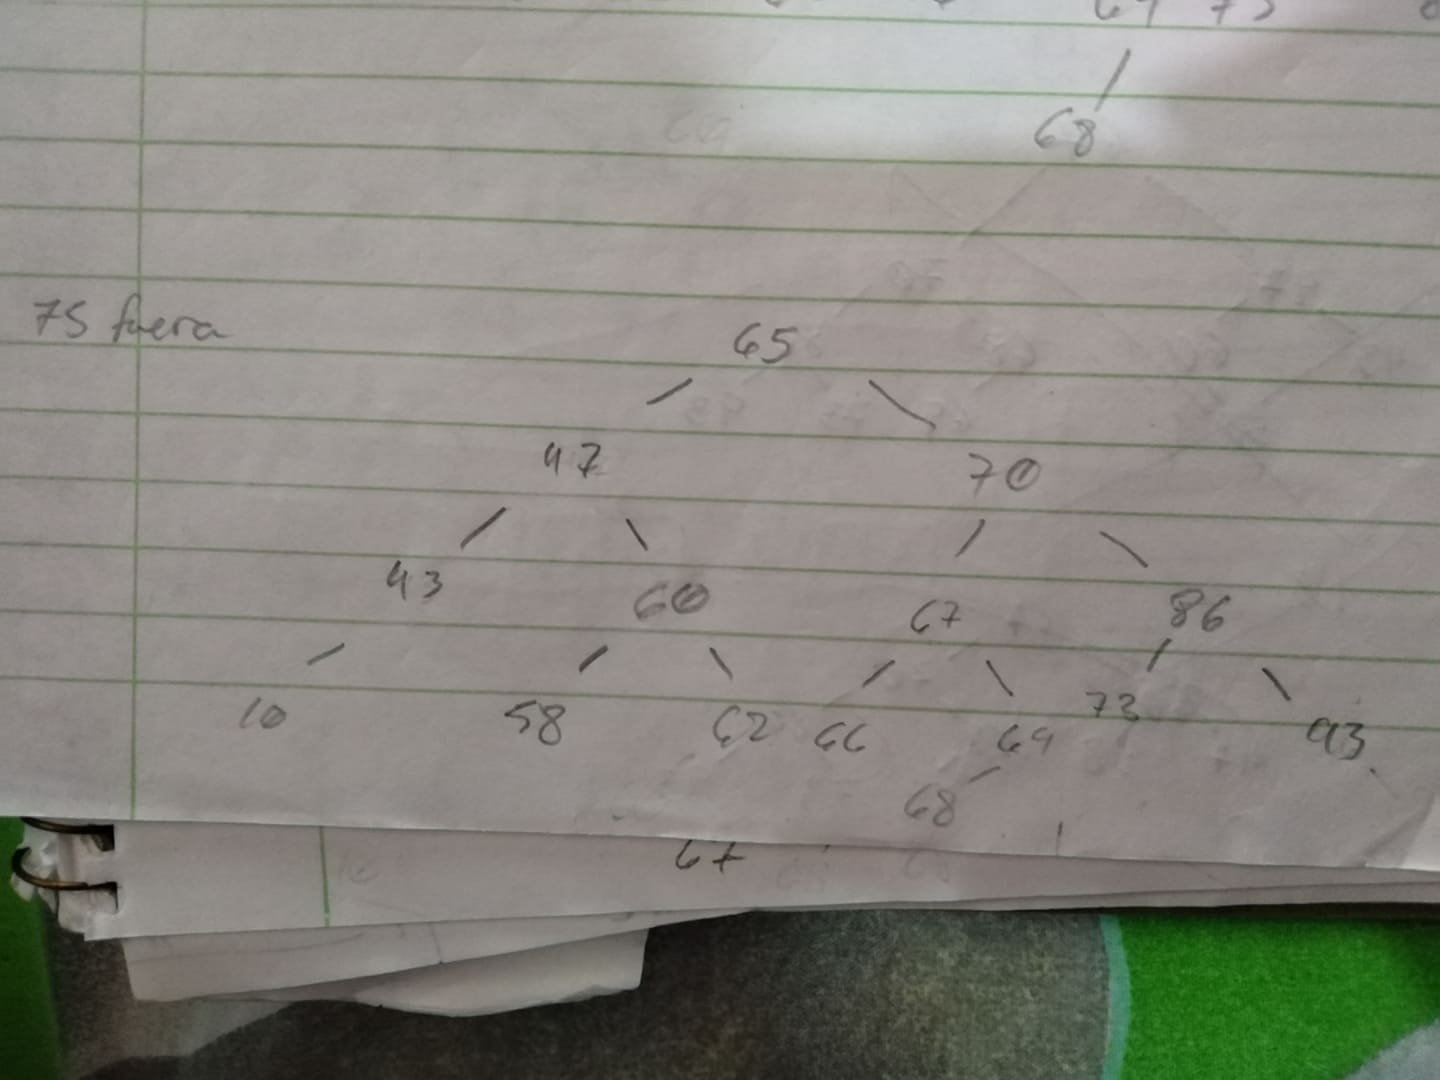 68
75 fuera
65
47 70
43 60 67 86
10 58 62 66 69 73 93
68
67